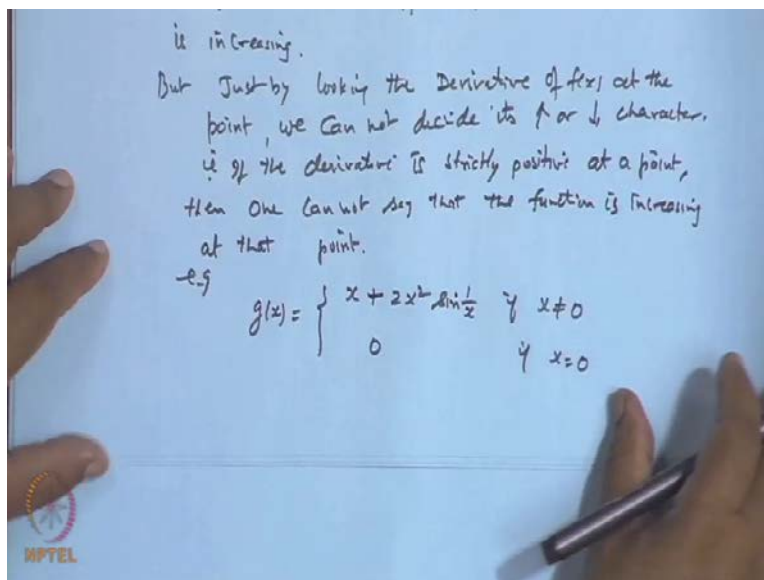 is increasing.
But Just by looking the Derivative of f(x) at the
point, we can not decide its ↑ or ↓ character.
ie if the derivative is strictly positive at a point,
then one can not say that the function is increasing
at that point.
e.g
g(x) = { x + 2x² sin 1/x if x ≠ 0
0 if x = 0
NPTEL